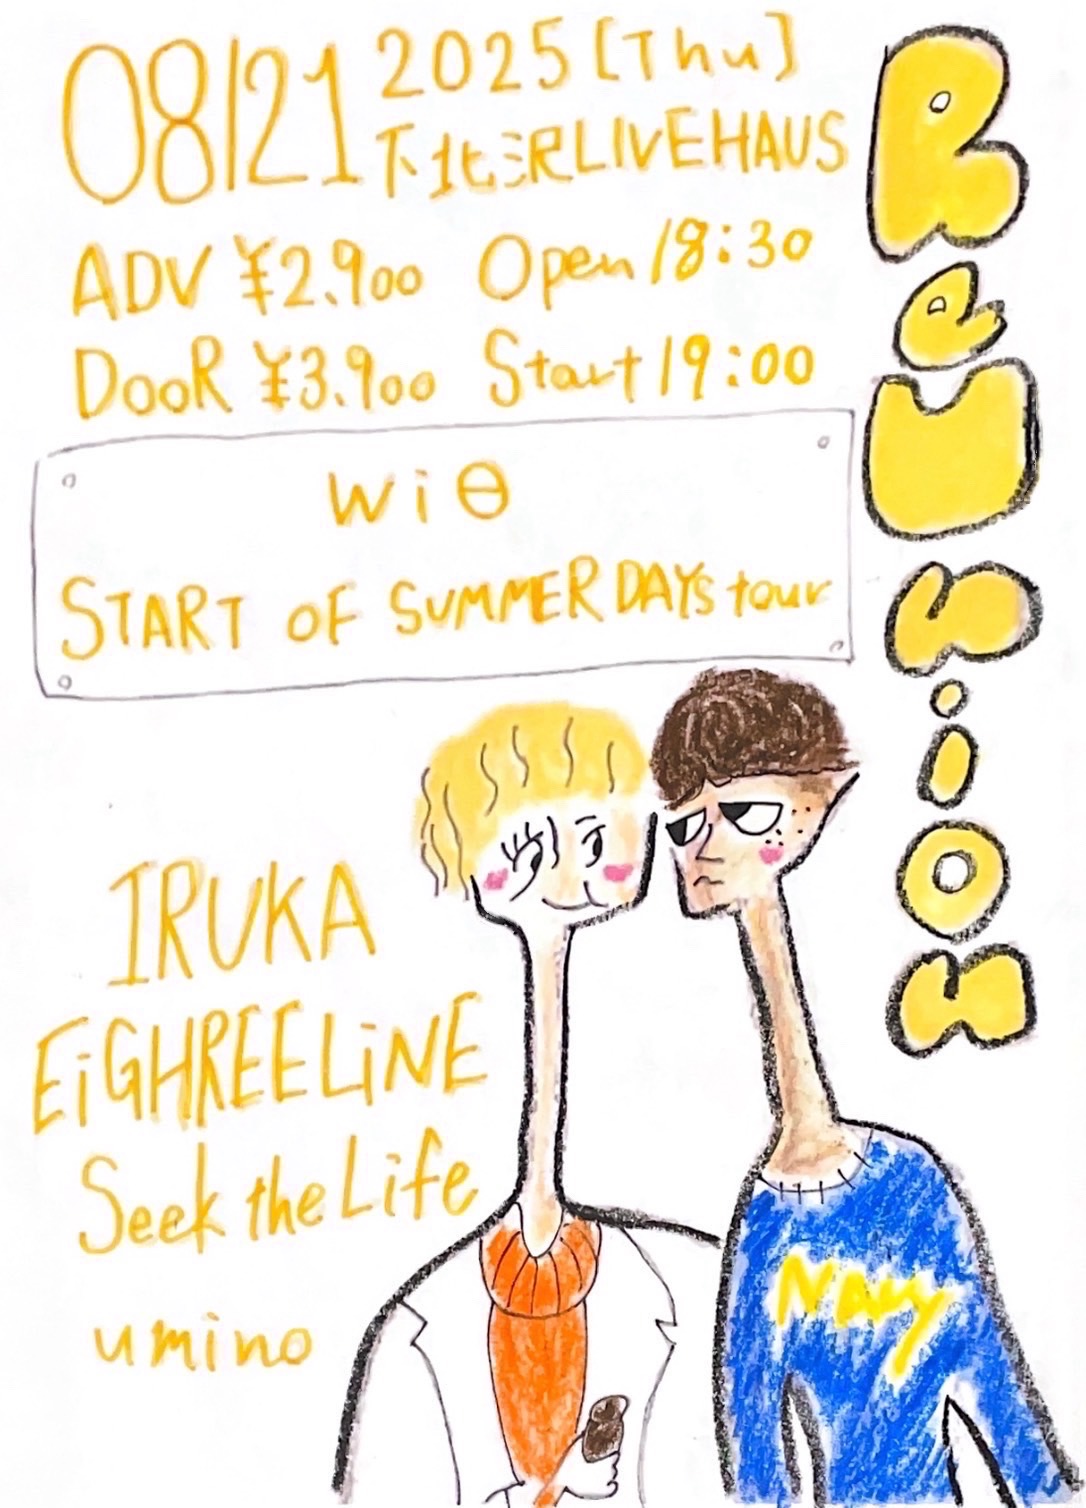 08/21 2025 [Thu]
下北沢LIVEHAUS
ADV ¥2.900 Open/18:30
DooR ¥3.900 Start/19:00
wiΘ
START OF SUMMER DAYS tour
ReUnion
IRUKA
EiGHREELiNE
Seek the Life
umino
NAvy